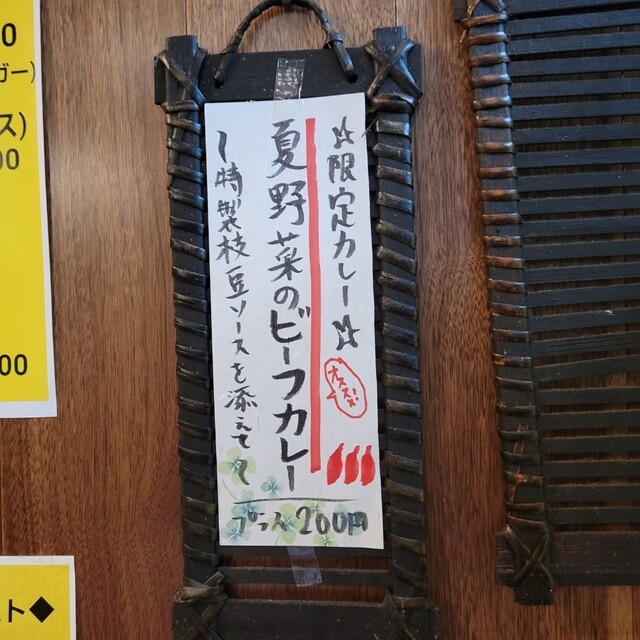 ☆限定カレー☆
オススメ
夏野菜のビーフカレー
〜特製枝豆ソースを添えて〜
プラス200円
0
ガー)
ス)
00
00
スト◆